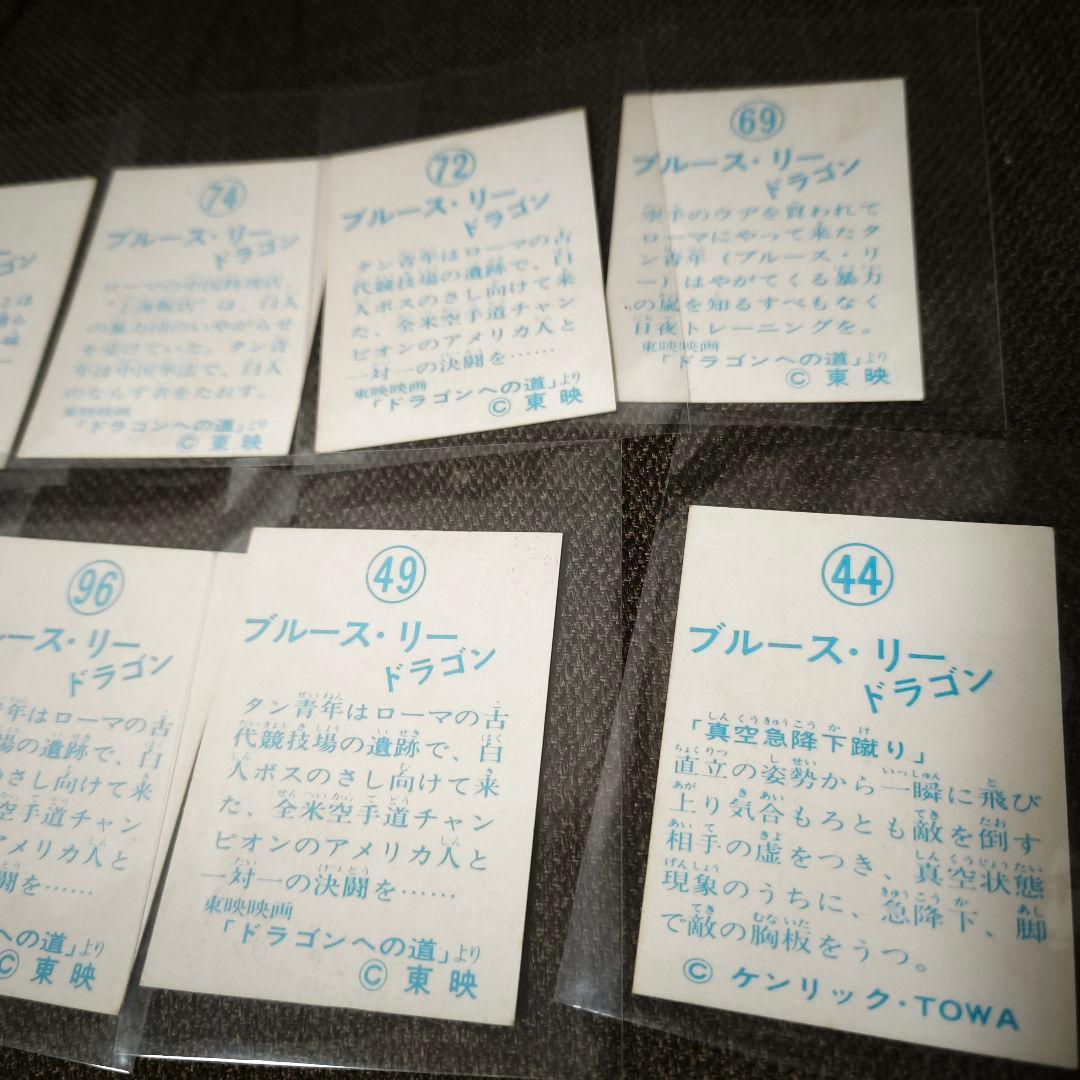 74
ブルース・リー
ドラゴン
ローマの中国料理店、
"上海飯店"は、白人
の暴力団のいやがらせ
を受けていた。タン青
年は中国拳法で、白人
のならず者をたおす。
東映映画
「ドラゴンへの道」より
© 東映
72
ブルース・リー
ドラゴン
タン青年はローマの古
代競技場の遺跡で、白
人ボスのさし向けて来
た、全米空手道チャン
ピオンのアメリカ人と
一対一の決闘を……
東映映画
「ドラゴンへの道」より
© 東映
69
ブルース・リー
ドラゴン
拳手のウデを買われて
ローマにやって来たタ
ン青年(ブルース・リ
ー)はやがてくる暴力
の嵐を知るすべもなく
日夜トレーニングを。
東映映画
「ドラゴンへの道」より
© 東映
96
ース・リー
ドラゴン
年はローマの古
場の遺跡で、白
のさし向けて来
空手道チャン
アメリカ人と
闘を……
への道」より
© 東映
49
ブルース・リー
ドラゴン
タン青年はローマの古
代競技場の遺跡で、白
人ボスのさし向けて来
た、全米空手道チャン
ピオンのアメリカ人と
一対一の決闘を……
東映映画
「ドラゴンへの道」より
© 東映
44
ブルース・リー
ドラゴン
「真空急降下蹴り」
直立の姿勢から一瞬に飛び
上り気合もろとも敵を倒す
相手の虚をつき、真空状態
現象のうちに、急降下、脚
で敵の胸板をうつ。
© ケンリック・TOWA